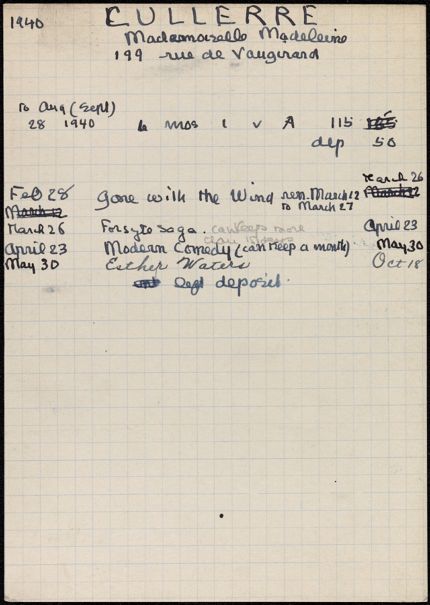 1940 CULLERRE
Mademoiselle Madeleine
199 rue de Vaugirard
to Aug (Sept)
28 1940 6 mos 1 v A 115
dep 50
March 26
Feb 28 Gone with the Wind ren. March 12 March 12
March 12 to March 27
March 26 Forsyte Saga. can keep more April 23
than
April 23 Modern Comedy (can keep a month) May 30
May 30 Esther Waters Oct 18
left deposit.